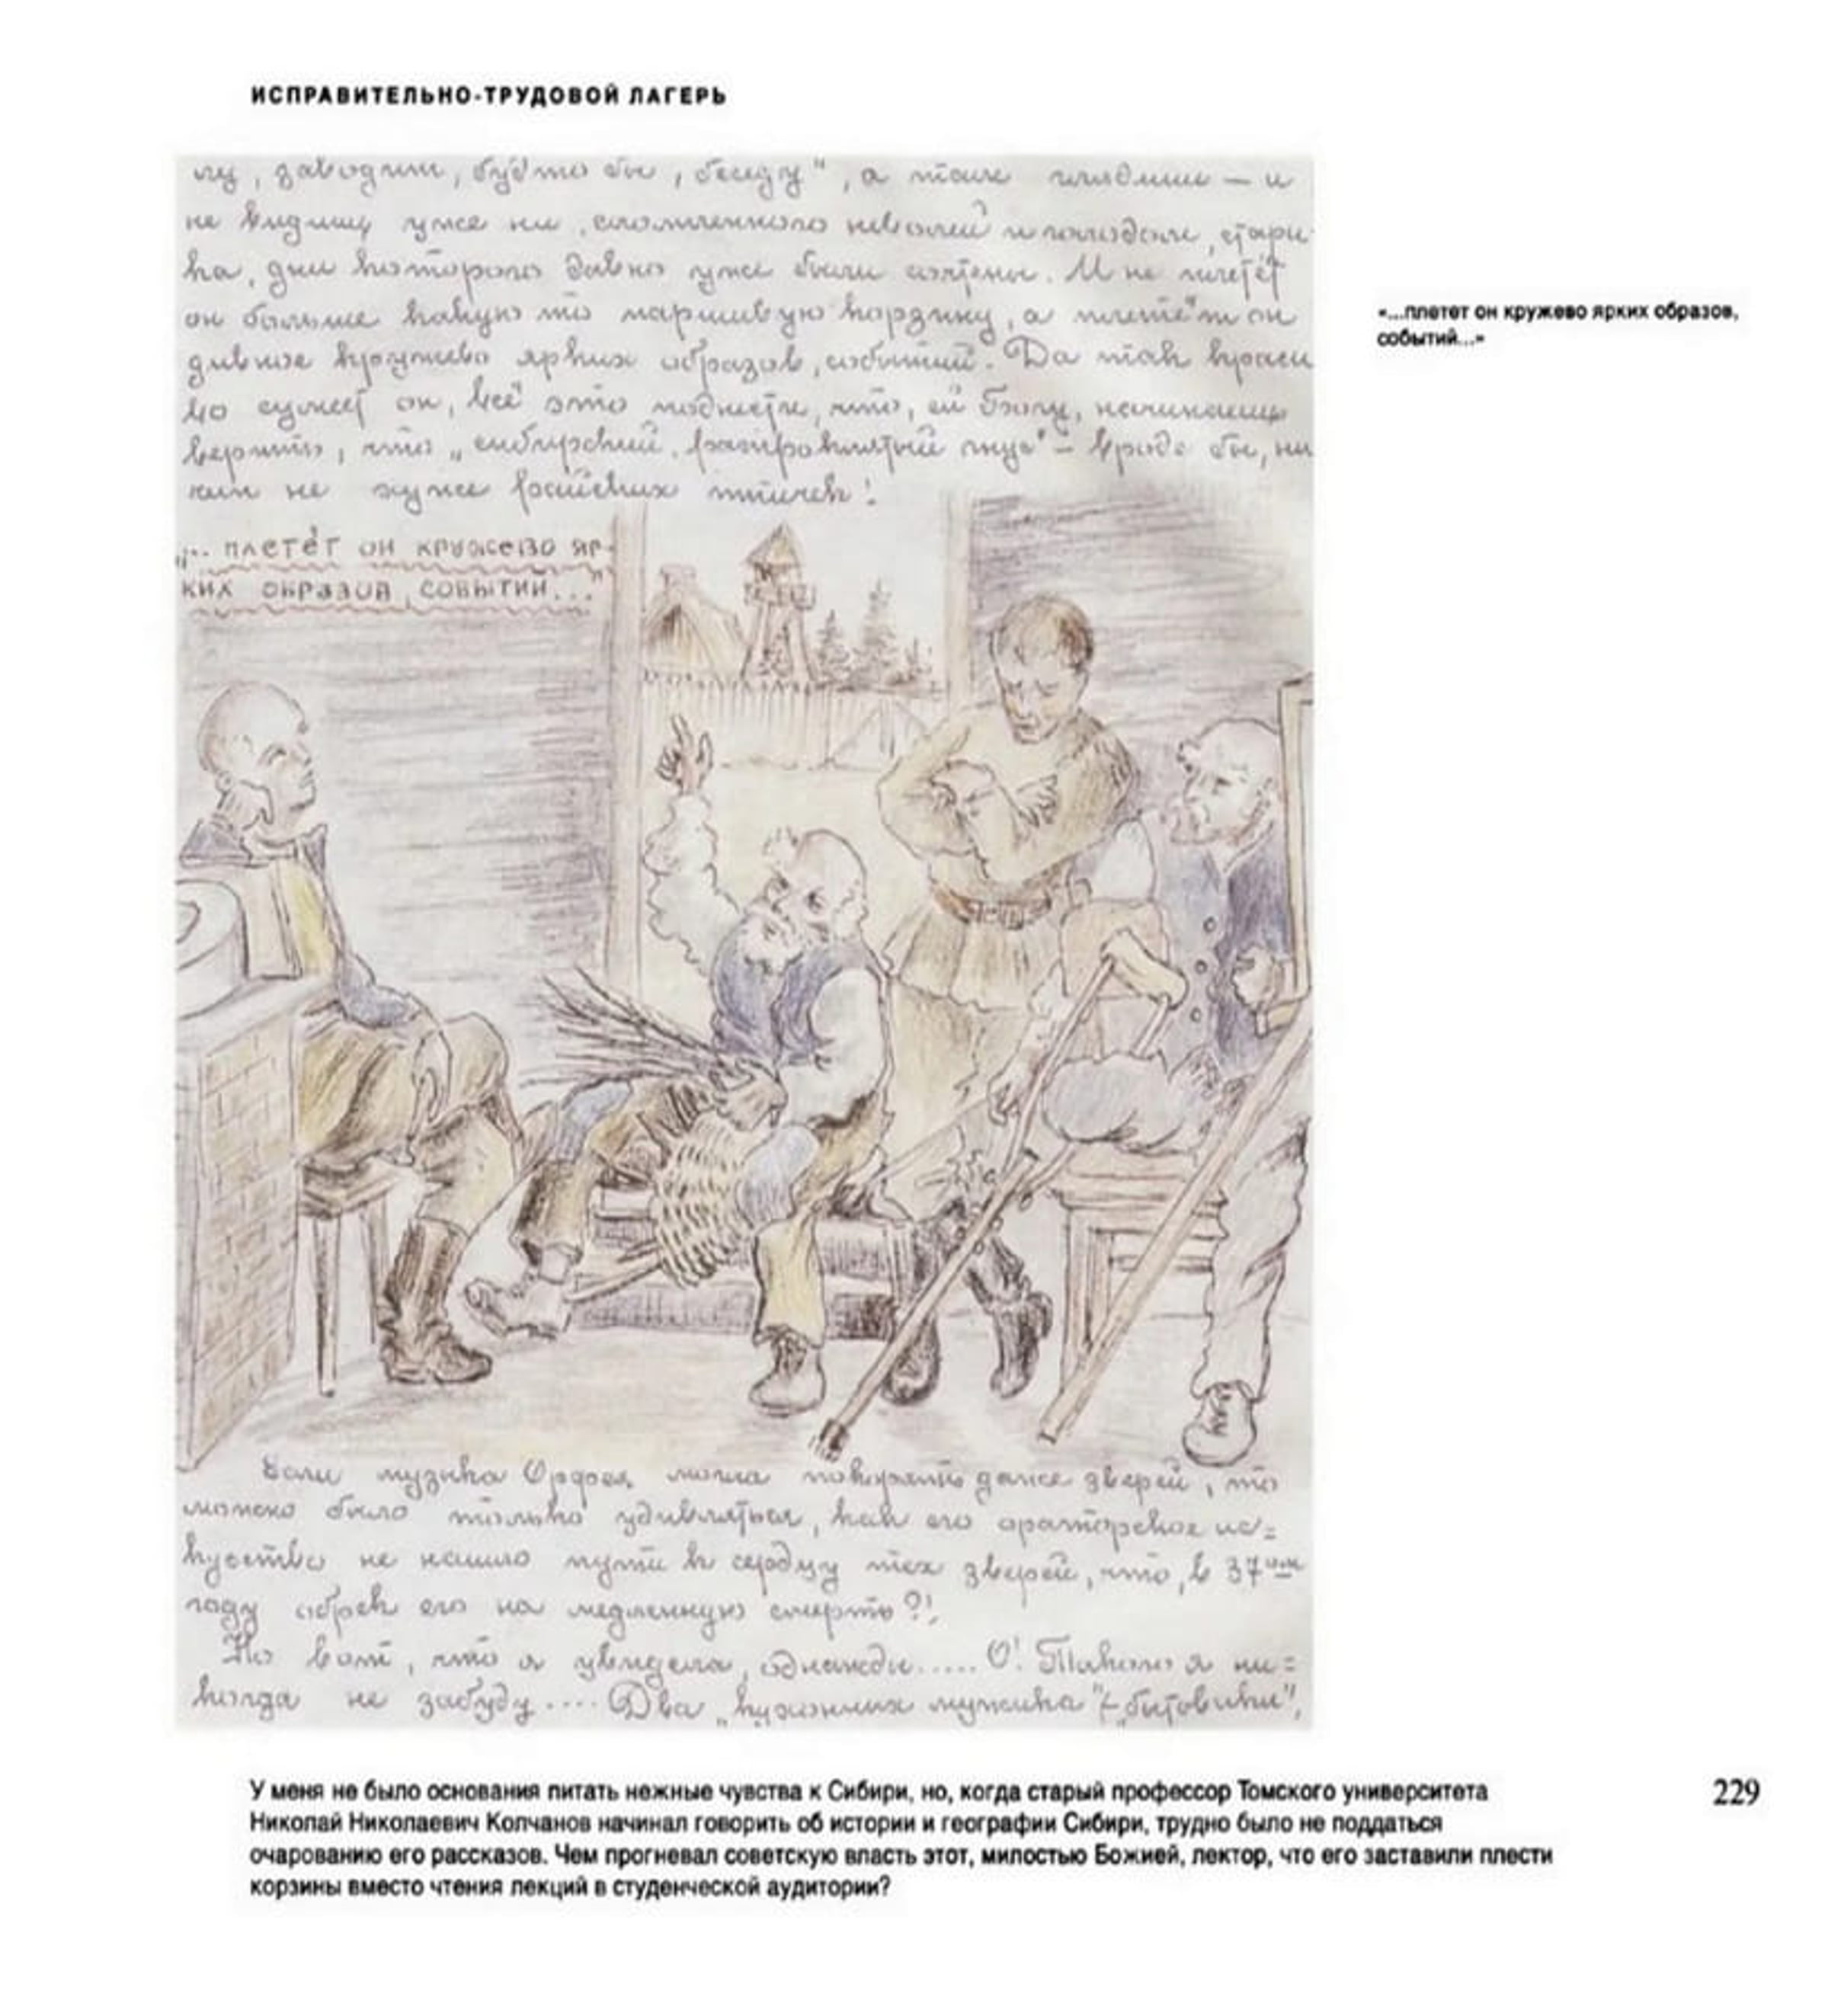 ИСПРАВИТЕЛЬНО-ТРУДОВОЙ ЛАГЕРЬ
му, заводит, будто бы, „беседу“, а там глядишь — и
не видишь уже ни сломленного неволей и голодом, стари
ка, дни которого давно уже были сочтены. И не плетёт
он больше какую то паршивую корзинку, а плетёт он
дивное кружево ярких образов, событий. Да так краси
во сумеет он, всё это поднести, что, ей Богу, начинаешь
верить, что „сибирский, распроклятый гнус“ – вроде бы, ни
чем не хуже российских птичек!
„... плетёт он кружево яр-
ких образов, событий...“
«...плетет он кружево ярких образов,
событий...»
Если музыка Орфея могла покорять даже зверей, то
можно было только удивляться, как его ораторское ис=
куство не нашло пути к сердцу тех зверей, что, в 37ом
году обрек его на медленную смерть?!
Но вот, что я увидела, однажды..... О! Такого я ни=
когда не забуду.... Два „кухонных мужика“ – „бытовики“,
У меня не было основания питать нежные чувства к Сибири, но, когда старый профессор Томского университета
Николай Николаевич Колчанов начинал говорить об истории и географии Сибири, трудно было не поддаться
очарованию его рассказов. Чем прогневал советскую власть этот, милостью Божией, лектор, что его заставили плести
корзины вместо чтения лекций в студенческой аудитории?
229